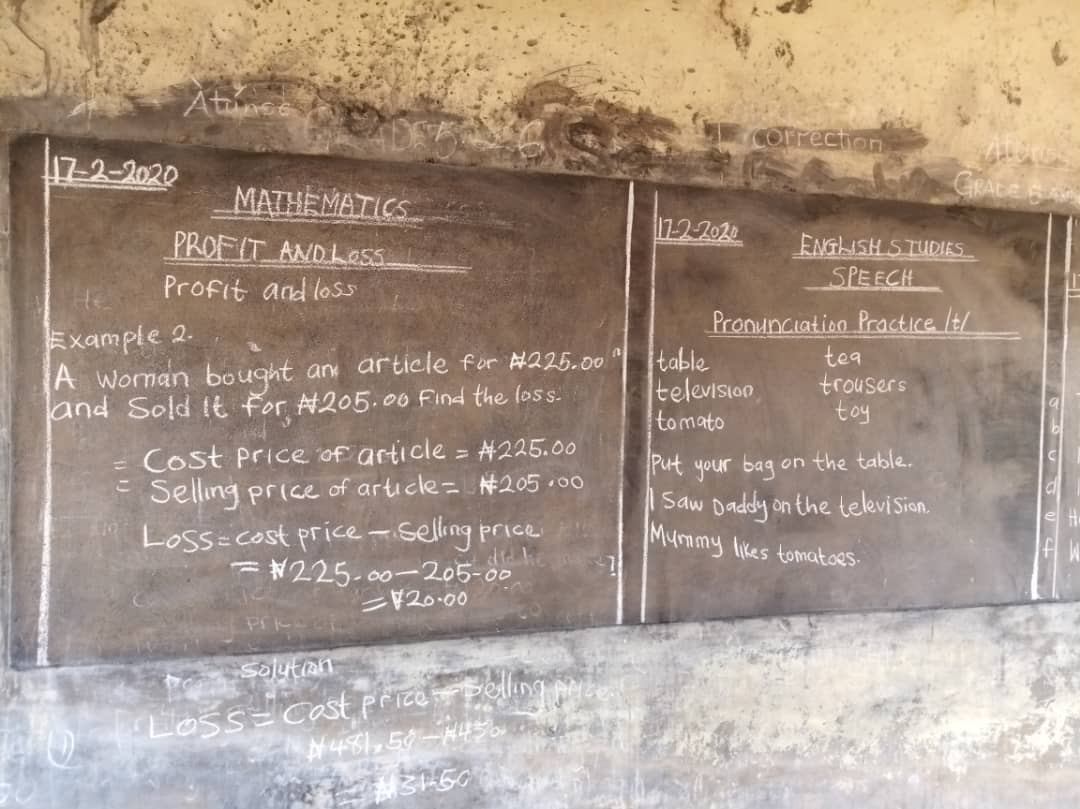 Atunse
GRADE 5 & 6
correction
GRADE 6
17-2-2020
MATHEMATICS
PROFIT AND LOSS
Profit and loss
Example 2.
A woman bought an article for ₦225.00
and Sold It for ₦205.00 Find the loss.
= Cost price of article = ₦225.00
= Selling price of article = ₦205.00
Loss = cost price – Selling price
= ₦225.00 – 205-00
= ₦20.00
Solution
Loss = Cost price – Selling price.
(1)
₦481.50 – ₦450
= ₦31-50
17-2-2020
ENGLISH STUDIES
SPEECH
Pronunciation Practice /t/
table tea
television trousers
tomato toy
Put your bag on the table.
I Saw Daddy on the television.
Mummy likes tomatoes.
a
b
c
d
e
f